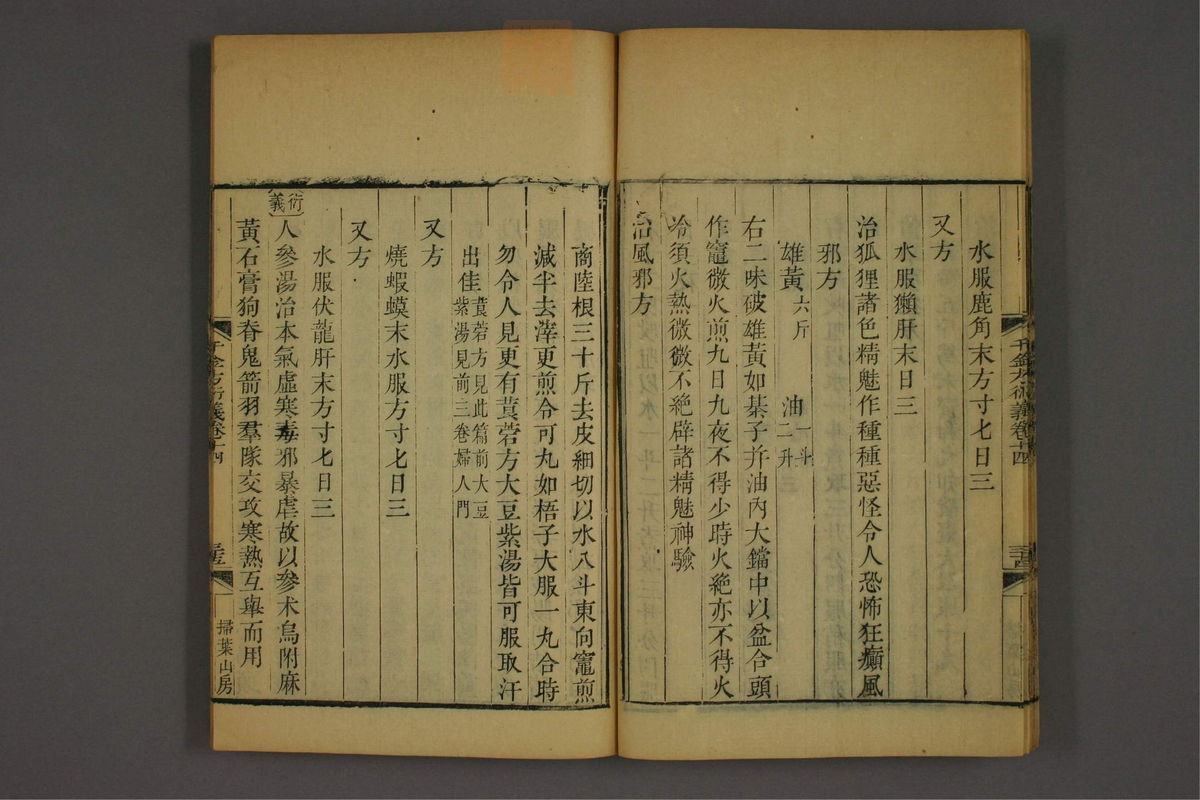 水服鹿角末方寸匕日三
又方
水服獺肝末日三
治狐狸諸色精魅作種種惡怪令人恐怖狂癲風
邪方
雄黃六斤 油一斗二升
右二味破雄黃如棊子幷油內大鐺中以盆合頭
作竈微火煎九日九夜不得少時火絶亦不得火
冷須火熱微微不絶辟諸精魅神驗
治風邪方
商陸根三十斤去皮細切以水八斗東向竈煎
減半去滓更煎令可丸如梧子大服一丸合時
勿令人見更有莨菪方大豆紫湯皆可服取汗
出佳莨菪方見此篇前大豆紫湯見前三卷婦人門
又方
燒蝦蟆末水服方寸匕日三
又方
水服伏龍肝末方寸匕日三
衍義人參湯治本氣虛寒毒邪暴虐故以參朮烏附麻
黃石膏狗脊鬼箭羽羣隊交攻寒熱互舉而用
千金方衍義卷十四
三十四
千金方衍義卷十四
三十五
掃葉山房